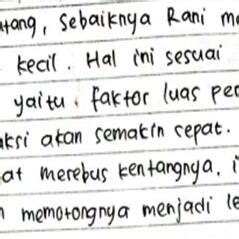 ntang, Sebaiknya Rani m
kecil. Hal ini sesuai
yaitu. faktor luas per
aksi akan semakin cepat.
at merebus kentangnya, i
memotongnya menjadi le